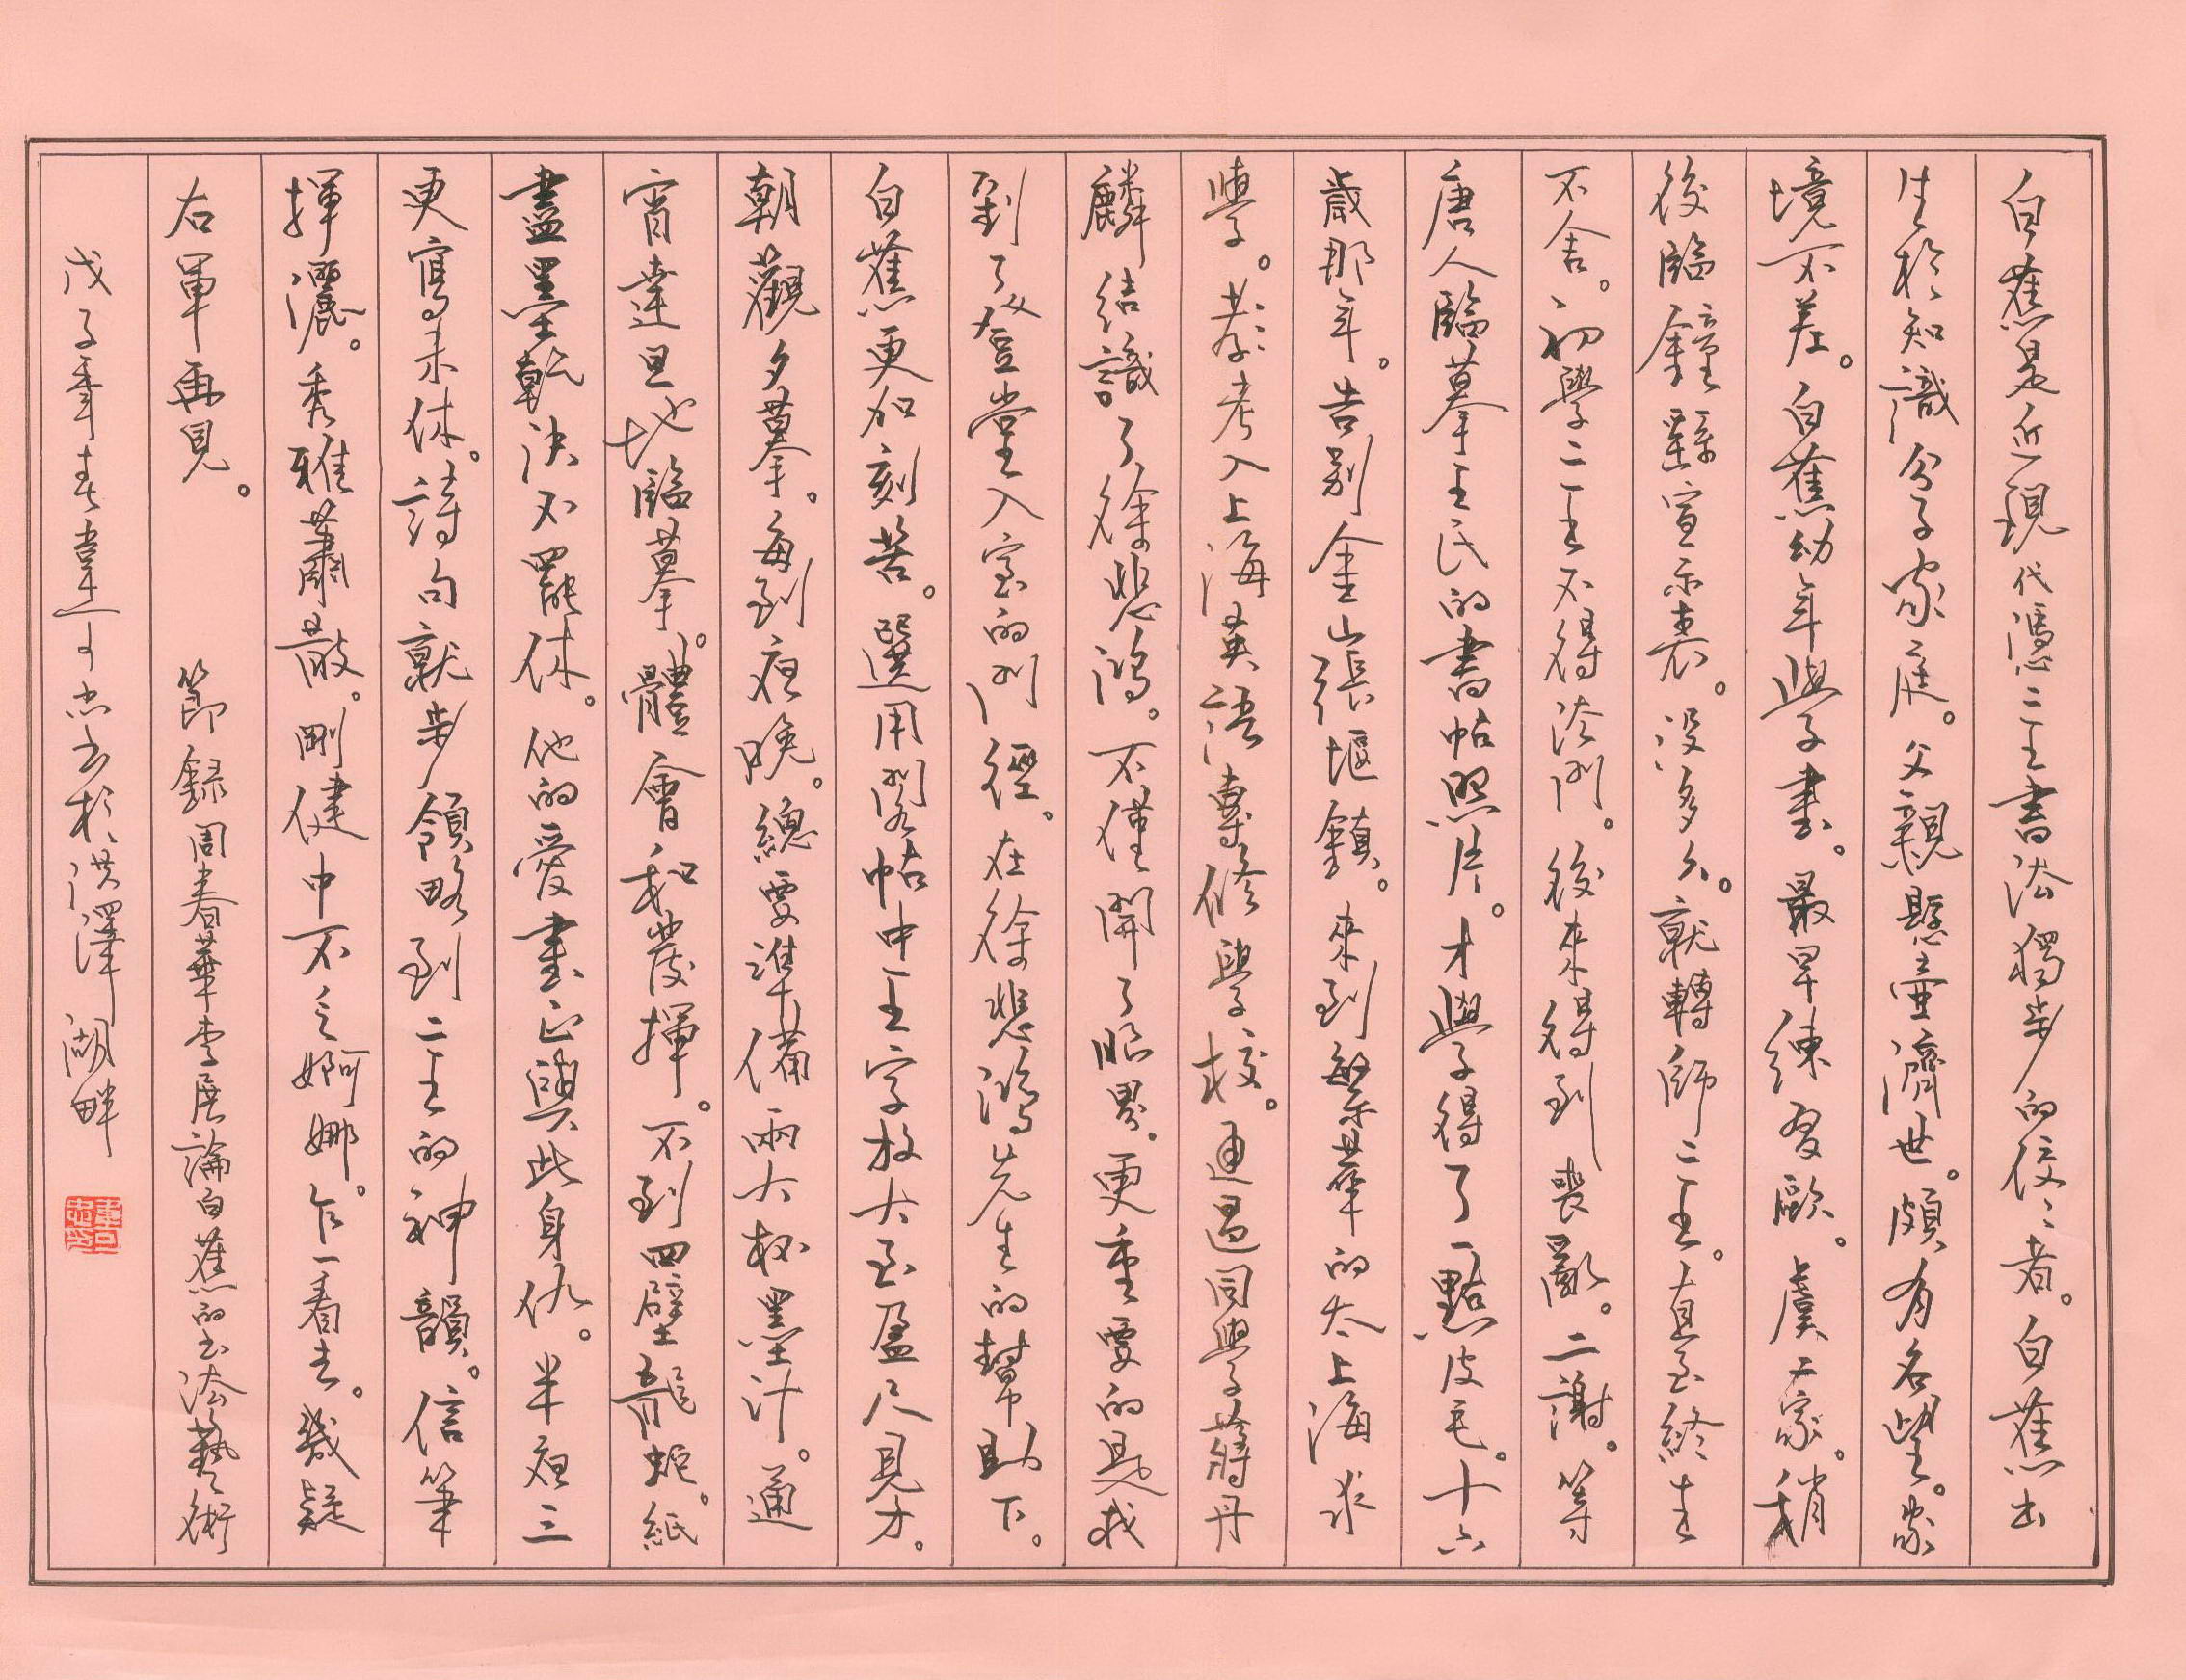 白蕉是近現代憑二王書法獨步的佼〻者。白蕉出
生於知識分子家庭。父親懸壺濟世。頗有名望。家
境不差。白蕉幼年學書。最早練習歐。虞二家。稍
後臨鍾繇宣示表。没多久。就轉師二王。直至終生
不舍。初學二王不得法門。後來得到喪亂。二謝。等
唐人臨摹王氏的書帖照片。才學得了一點皮毛。十六
歲那年。告别金山張堰鎮。來到繁華的大上海求
學。考入上海英語專修學校。通過同學蔣丹
麟結識了徐悲鴻。不僅開了眼界。更重要的是找
到了登堂入室的門徑。在徐悲鴻先生的幫助下。
白蕉更加刻苦。選用閣帖中王字放大至盈尺見方。
朝觀夕摹。每到夜晚。總要準備兩大杯墨汁。通
宵達旦地臨摹。體會和發揮。不到四壁龍蛇。紙
盡墨乾決不罷休。他的愛書正與此身仇。半夜三
更寫未休。詩句就步領略到二王的神韻。信筆
揮灑。秀雅蕭散。剛健中不乏婀娜。乍一看去。幾疑
右軍再見。 節録周春華李展論白蕉的書法藝術
戊子年春韋可忠書於洪澤湖畔